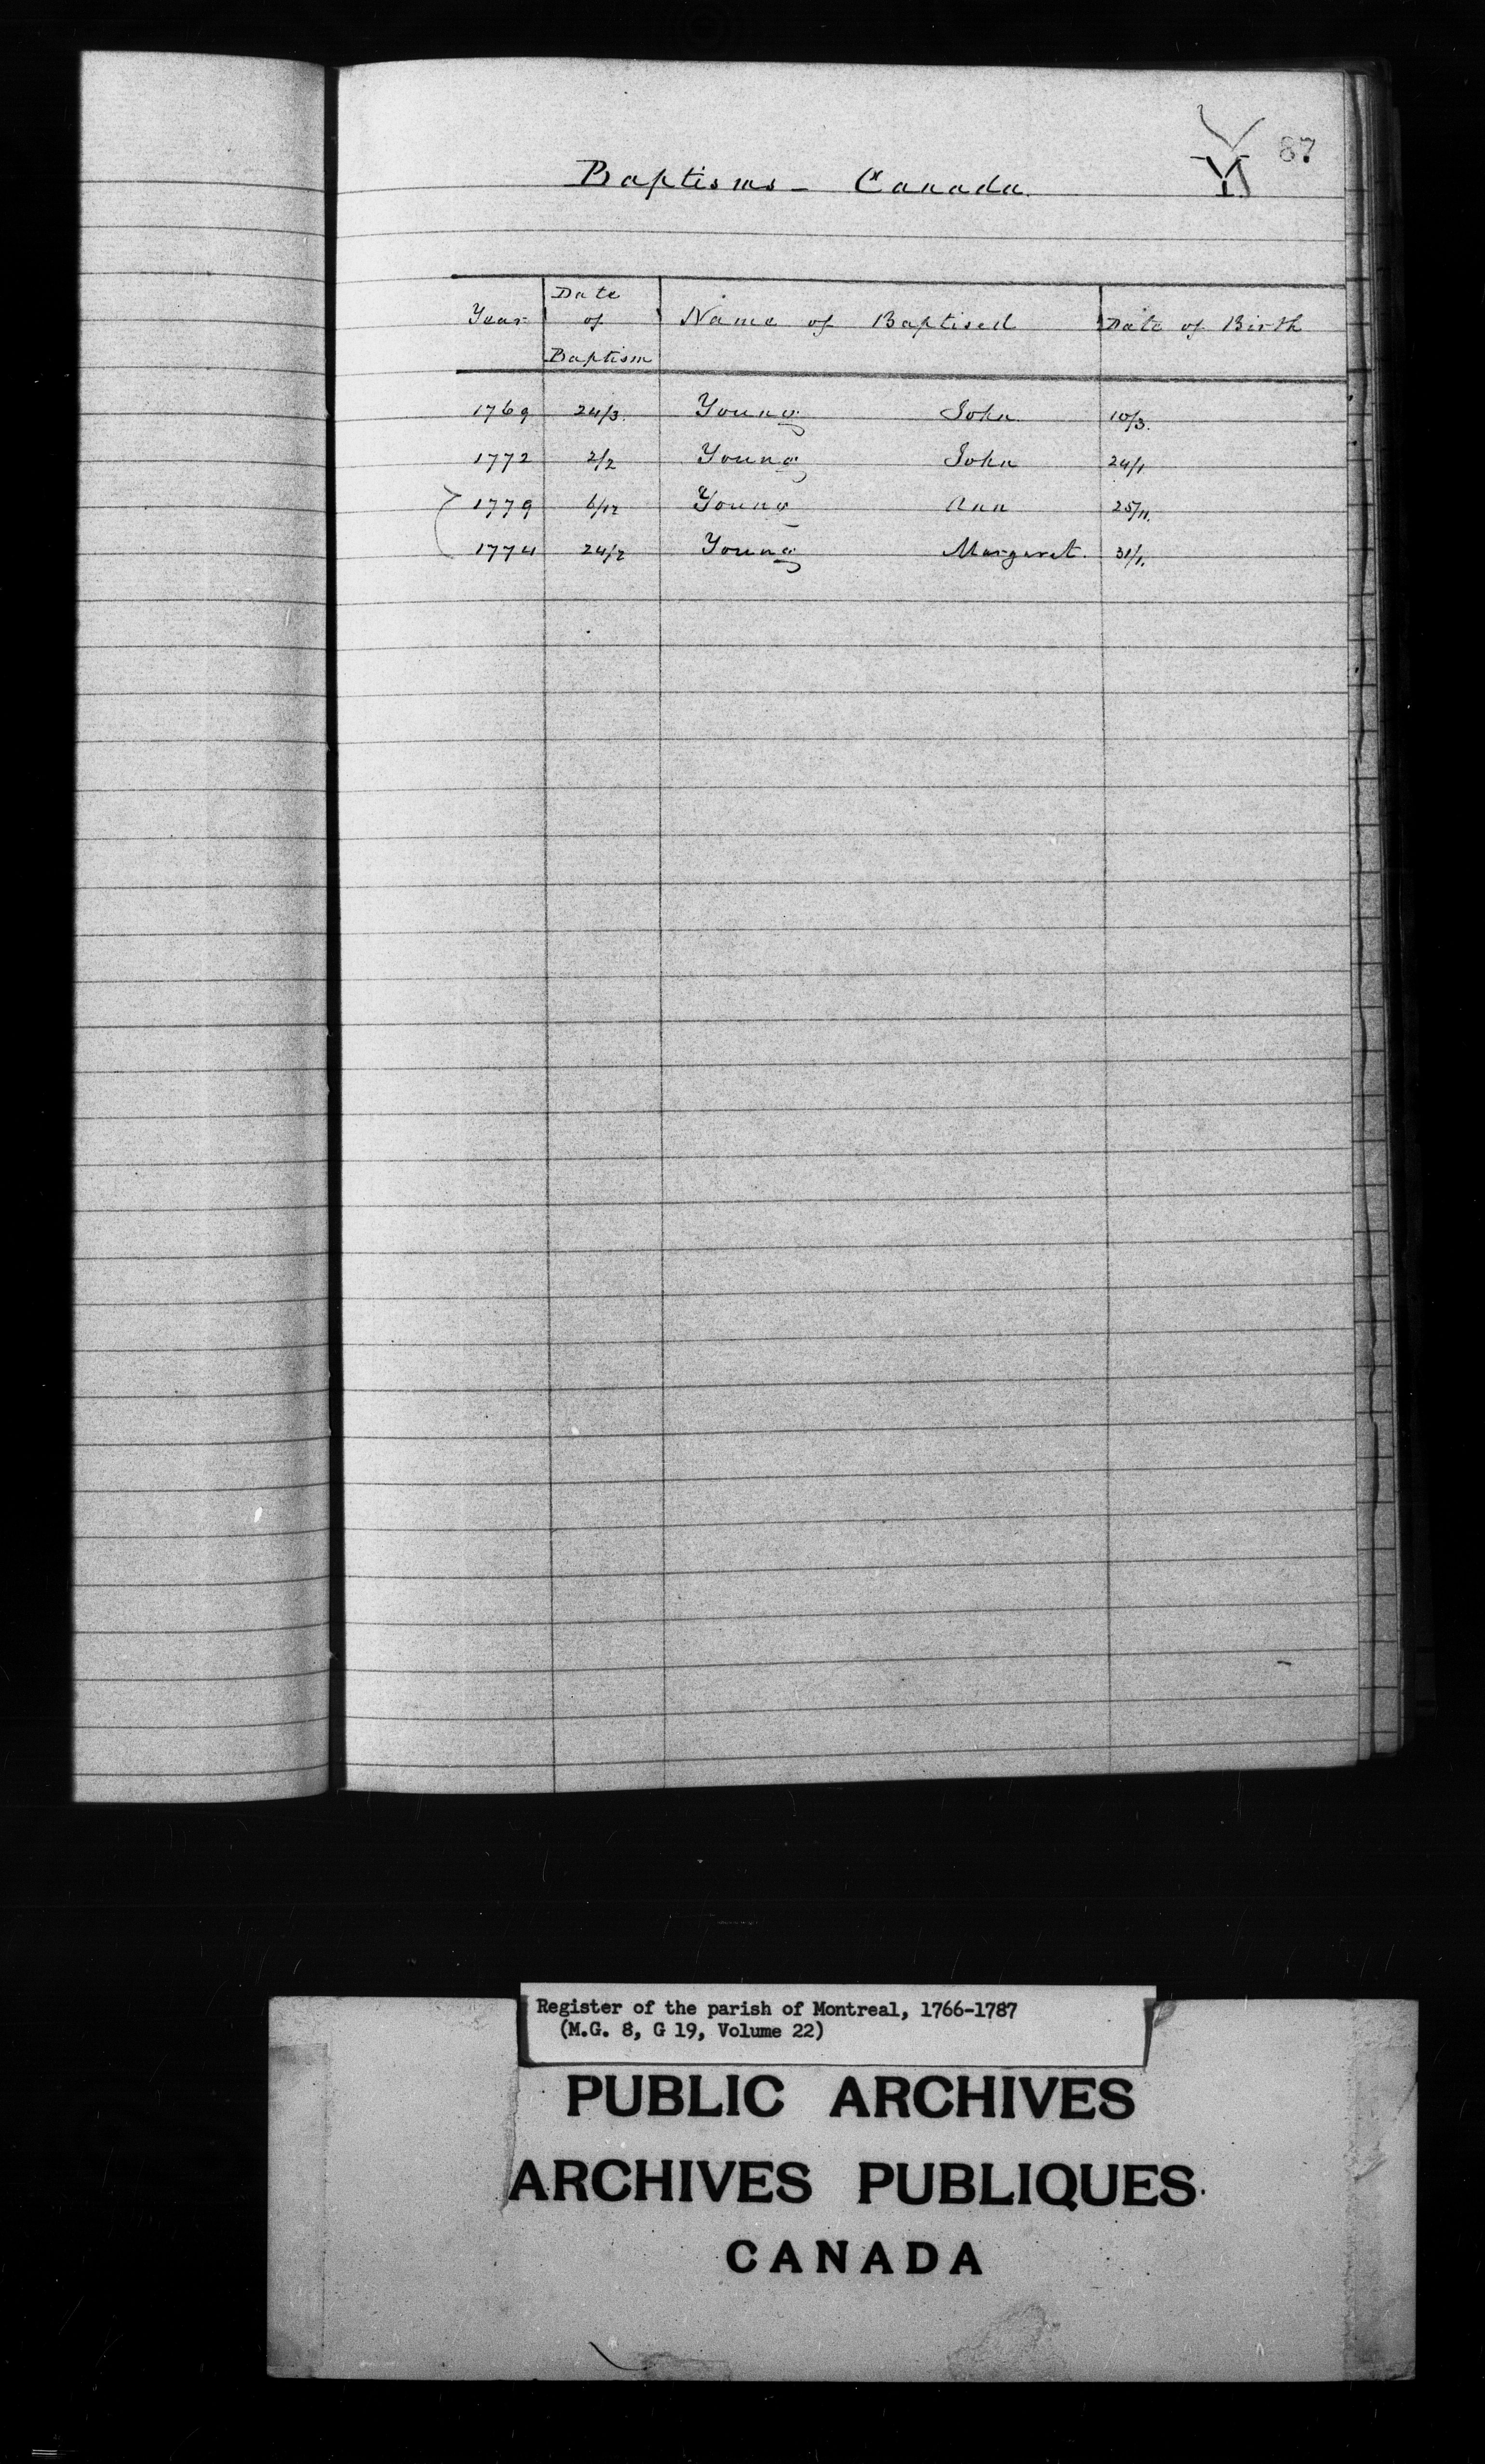 87
Y
Baptisms - Canada.
Year Date of Baptism Name of Baptised Date of Birth
1769 24/3. Young John 10/3.
1772 2/2 Young John 24/1.
1779 6/12 Young Ann 25/11.
1774 24/2 Young Margaret. 31/1.
Register of the parish of Montreal, 1766-1787
(M.G. 8, G 19, Volume 22)
PUBLIC ARCHIVES
ARCHIVES PUBLIQUES
CANADA